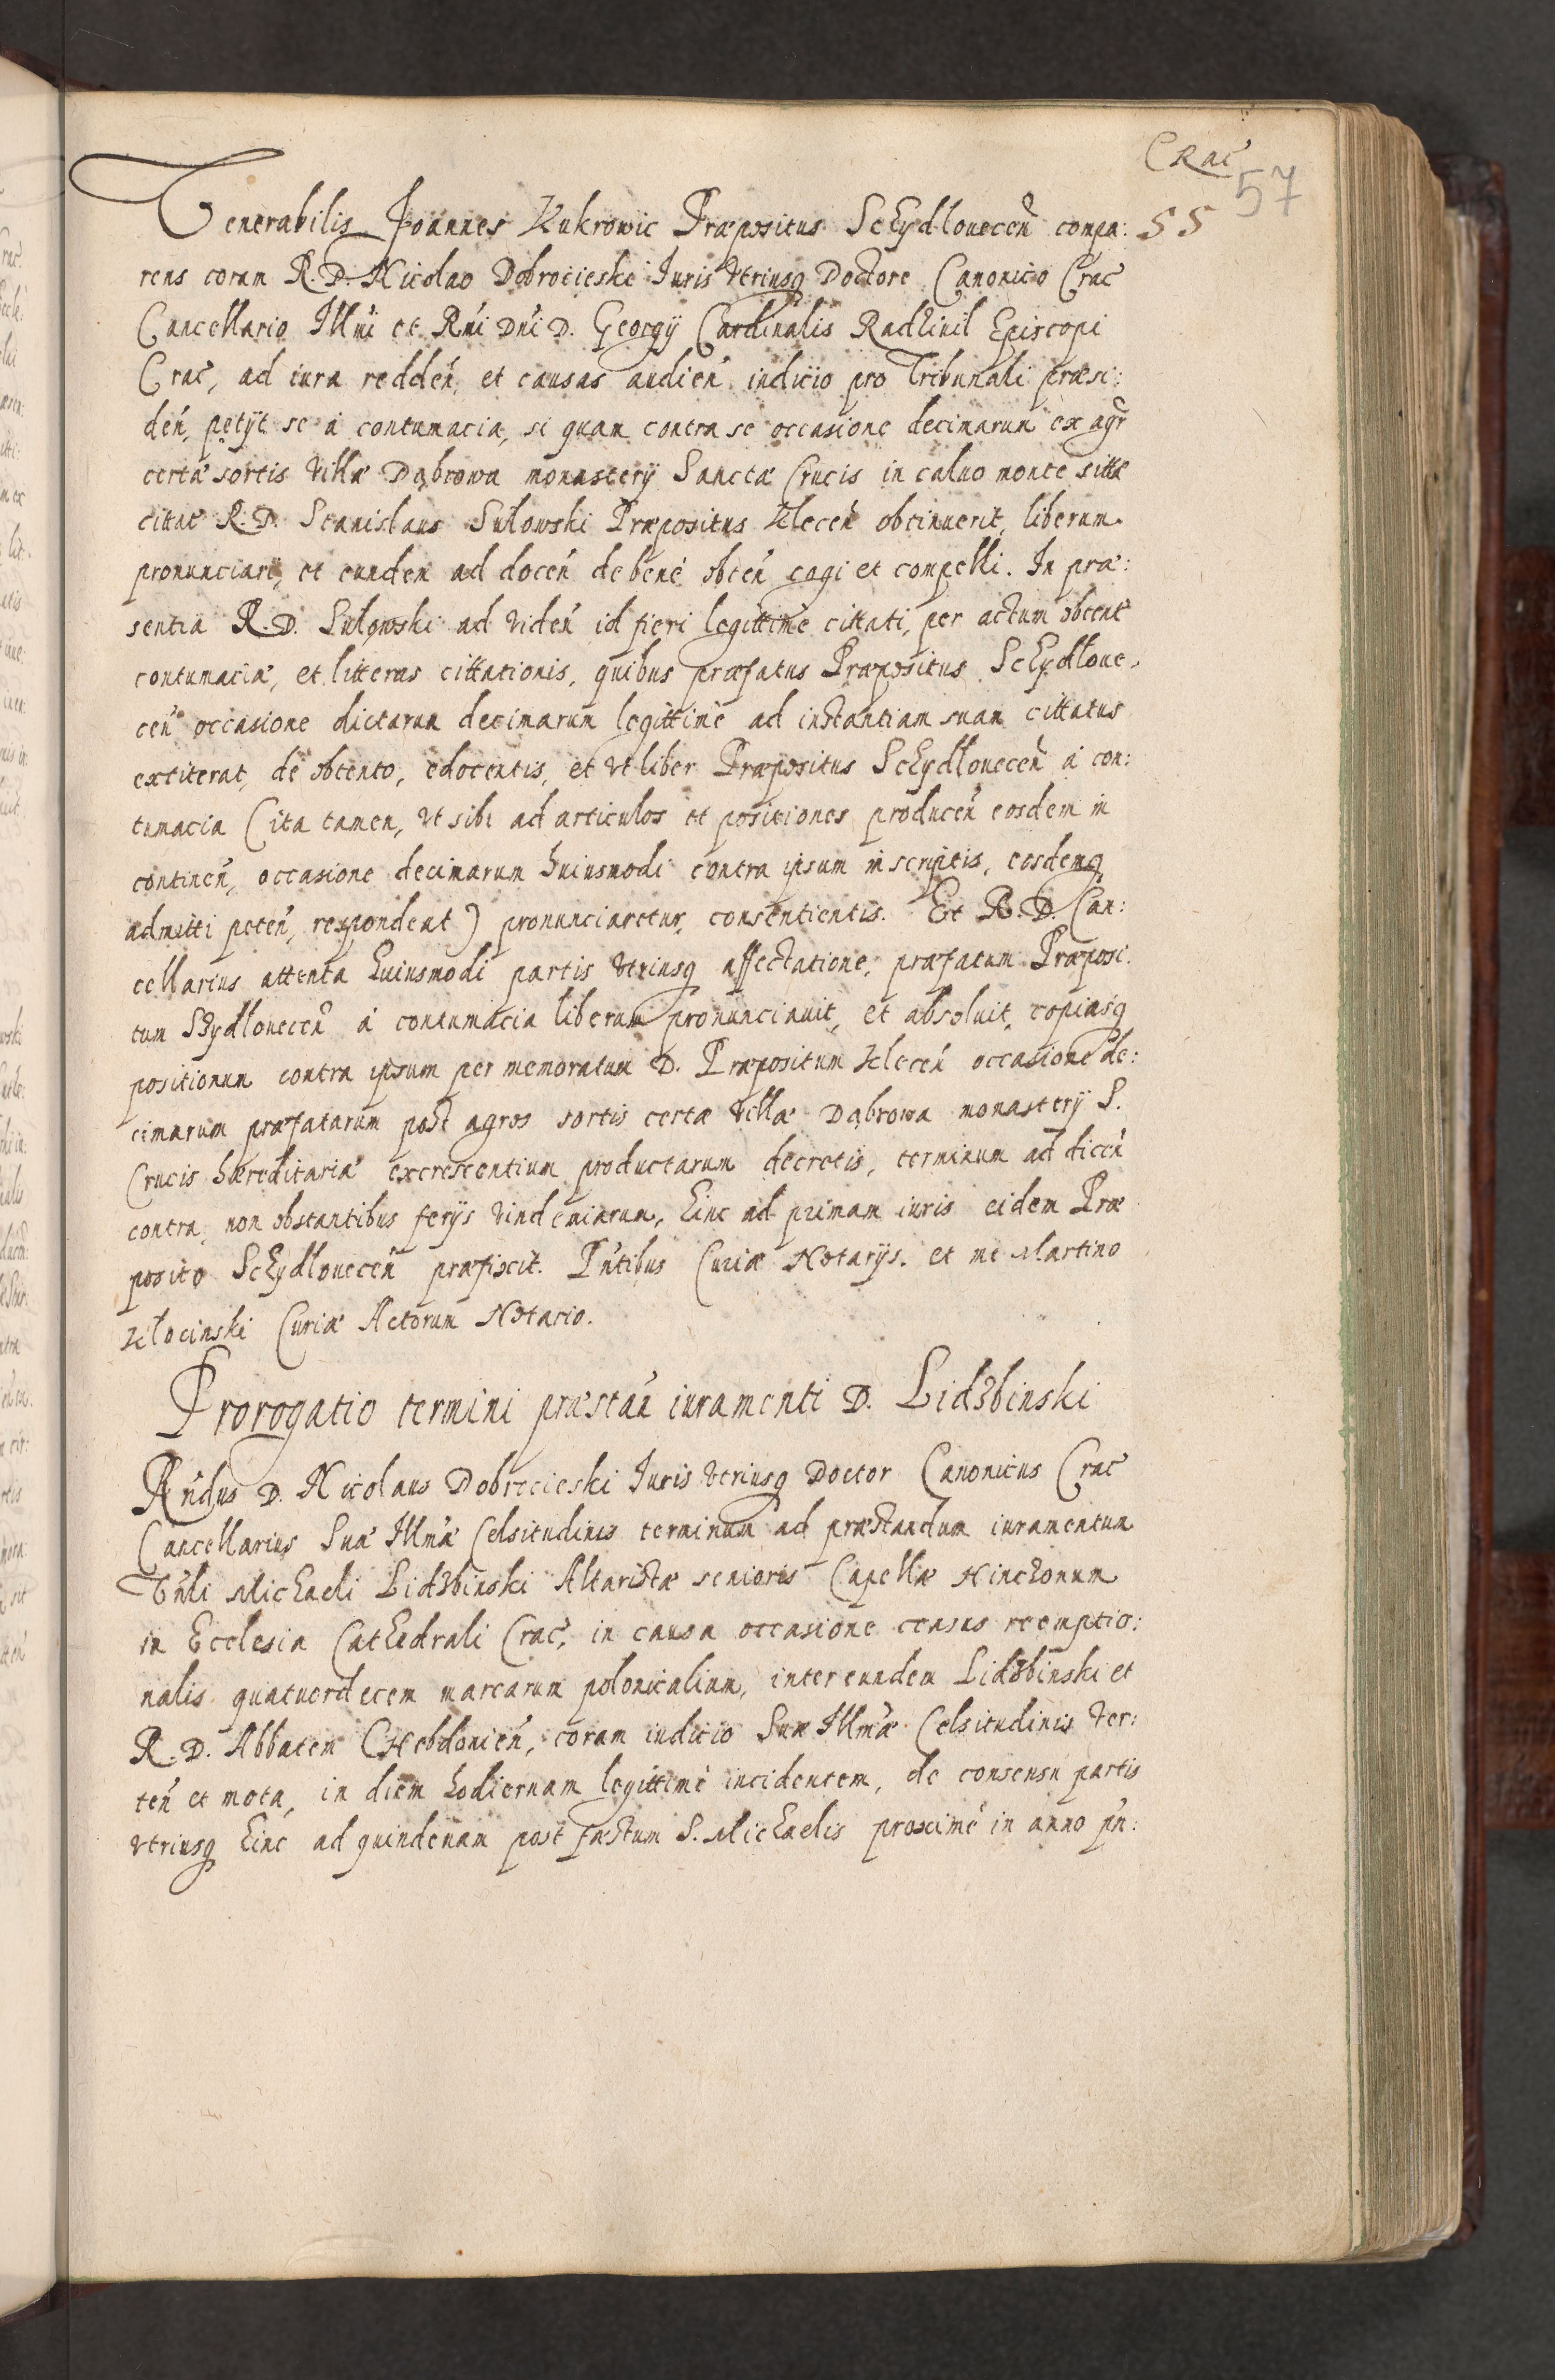 CRac̃
57
Venerabilis Joannes Kukrowic Præpositus Schydlouecen̄ compa: 55
rens coram R. D. Nicolao Dobrocieski Iuris Vtriusq Doctore Canonico Crac̃
Cancellario Illm̃i et Rm̃i Dn̄i D. Georgÿ Cardinalis Radhiuil Episcopi
Crac̃, ad iura redden̄, et causas audien̄ iudicio pro Tribunali præsi:
den̄, petÿt se à contumacia, si quam contra se occasione decimarum ex agr̃
certæ sortis Villæ Dąbrowa monasterÿ Sanctæ Crucis in caluo monte sittæ
cittat̃ R. D. Stanislaus Sulowski Præpositus Klecen̄ obtinuerit, liberum
pronunciari, et eundem ad docen̄ de bene obten̄ cogi et compelli. In præ:
sentia R. D. Sulowski ad viden̄ id fieri legittimè cittati, per actum obtent̃
contumaciæ, et litteras cittationis, quibus præfatus Præpositus Schydloue,
cen̄ occasione dictarum decimarum legittimè ad instantiam suam cittatus
extiterat, de obtento, edocentis, et vt liber Præpositus Schydlouecen̄ à con:
tumacia (ita tamen, vt sibi ad articulos et positiones producen̄ eosdem in
continen̄, occasione decimarum huiusmodi contra ipsum in scriptis, eosdemq
admitti peten̄, respondeat) pronunciaretur, consentientis. Et R. D. Can:
cellarius attenta huiusmodi partis vtriusq affectatione, præfatum Præposi:
tum Shydlouecen̄ à contumacia liberum pronunciauit, et absoluit, copiasq
positionum contra ipsum per memoratum D. Præpositum Klecen̄ occasione de:
cimarum præfatarum post agros sortis certæ Villæ Dąbrowa monasterÿ S.
Crucis hæreditariæ excrescentium productarum decretis, terminum ad dicen̄
contra, non obstantibus ferÿs vindemiarum, hinc ad primam iuris eidem Præ
posito Schydlouecen̄ præfixit. Pn̄tibus Curiæ Notarÿs. et me Martino
Klocinski Curiæ Actorum Notario.
Prorogatio termini præstan̄ iuramenti D. Lidzbinski
Rn̄dus D. Nicolaus Dobrocieski Iuris vtriusq Doctor Canonicus Crac̃
Cancellarius Suæ Illm̃æ Celsitudinis terminum ad præstandum iuramentum
Vn̄li Michaeli Lidzbinski Altaristæ senioris Capellæ Hinczonum
in Ecclesia Cathedrali Crac̃, in causa occasione census reemptio:
nalis quatuordecem marcarum polonicalium, inter eundem Lidzbinski et
R. D. Abbatem CHebdouien̄, coram iudicio Suæ Illm̃æ Celsitudinis ver:
ten̄ et mota, in diem hodiernam legittimè incidentem, de consensu partis
vtriusq hinc ad quindenam post festum S. Michaelis proximè in anno pn̄: